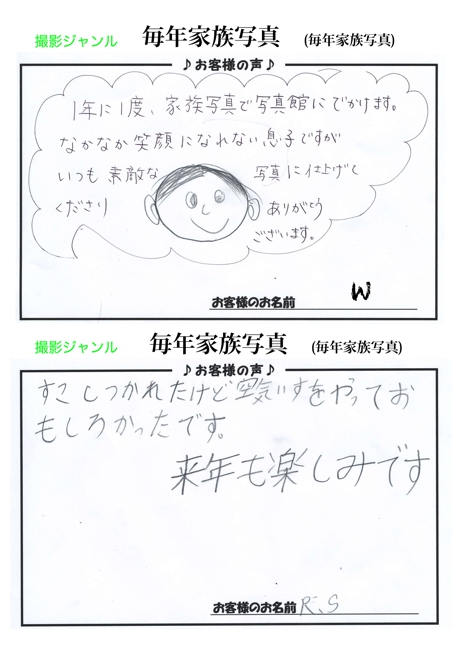 撮影ジャンル 毎年家族写真 (毎年家族写真)
♪お客様の声♪
1年に1度、家族写真で写真館にでかけます。
なかなか笑顔になれない息子ですが
いつも素敵な 写真に仕上げて
くださり ありがとう
ございます。
お客様のお名前 W
撮影ジャンル 毎年家族写真 (毎年家族写真)
♪お客様の声♪
すこしつかれたけど空気いすをやってお
もしろかったです。
来年も楽しみです
お客様のお名前 R.S